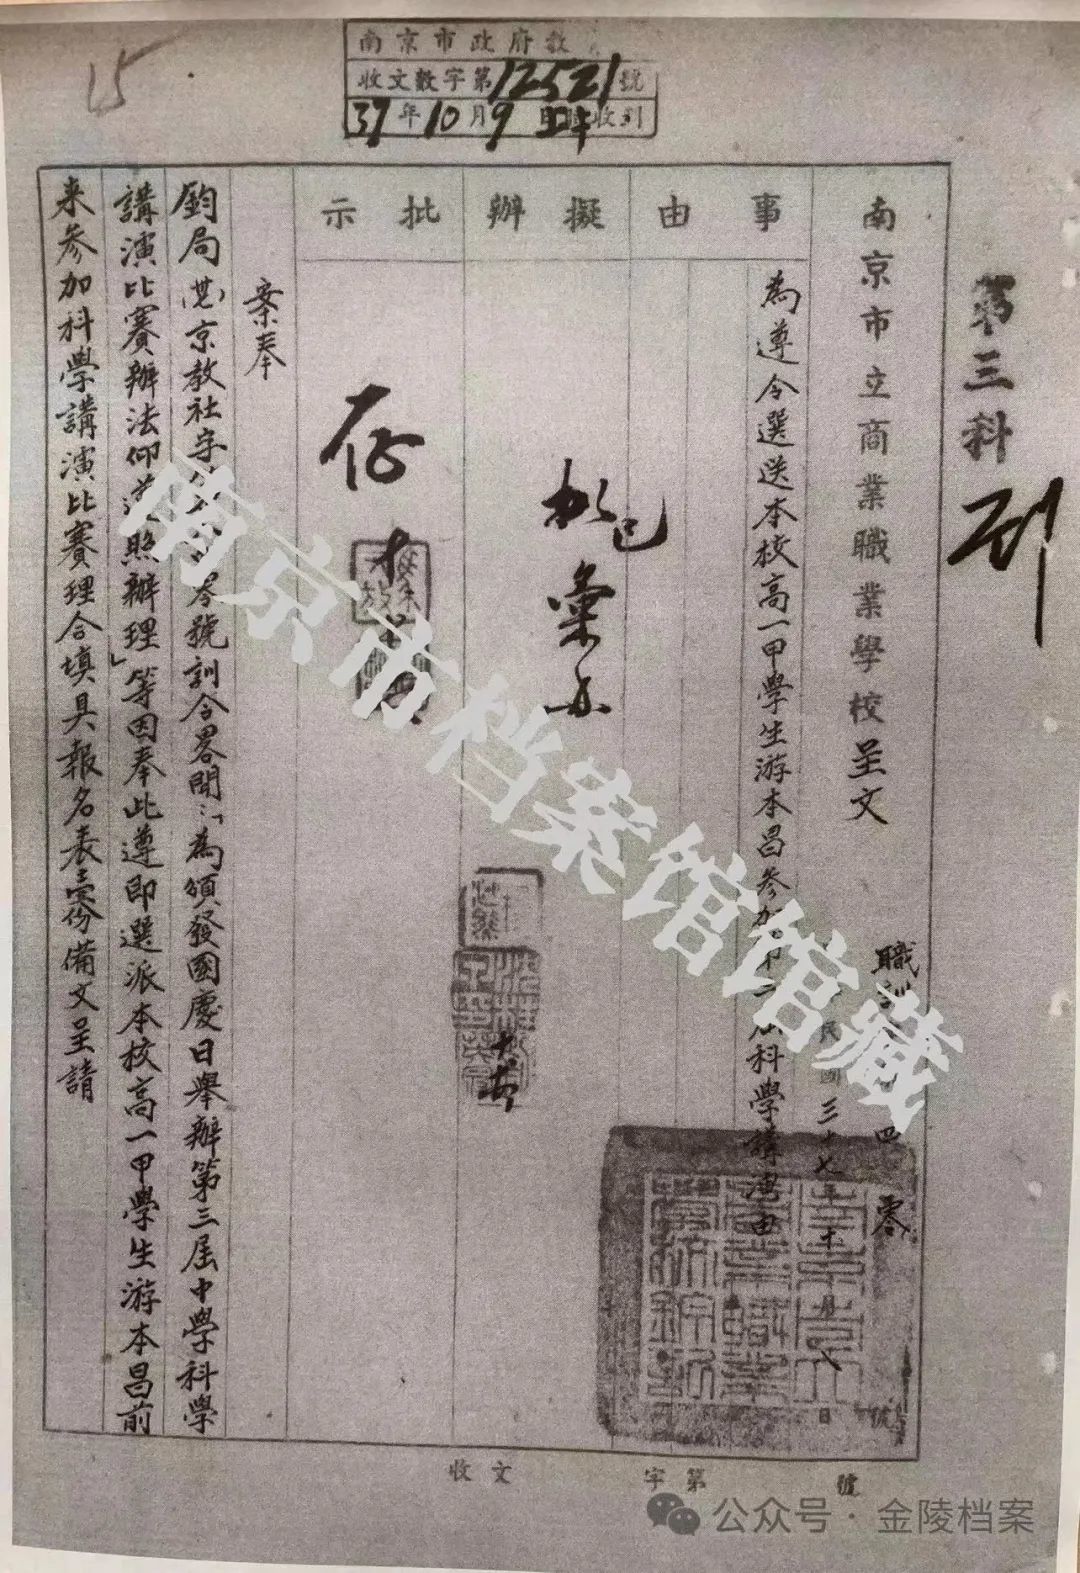 15
南京市政府教
收文數字第12521號
37年10月9日 時收到
第三科
南京市立商業職業學校呈文
職訓 四 零 號
民國三十七年十月八日
事由
為遵令選送本校高一甲學生游本昌參加第三屆科學講演由
擬辦
彙办
批示
存
案奉
鈞局 京教社字 號訓令畧開：「為頒發國慶日舉辦第三屆中學科學
講演比賽辦法仰遵照辦理」等因奉此遵即選派本校高一甲學生游本昌前
来參加科學講演比賽理合填具報名表壹份備文呈請
收文 字第 號
南京市档案馆馆藏
公众号·金陵档案